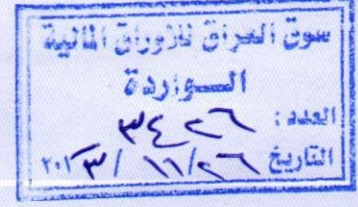 سوق العراق للأوراق المالية
الـــواردة
العدد: ٣٤٢٦
التاريخ ٢٦/ ١١/ ٢٠١٣